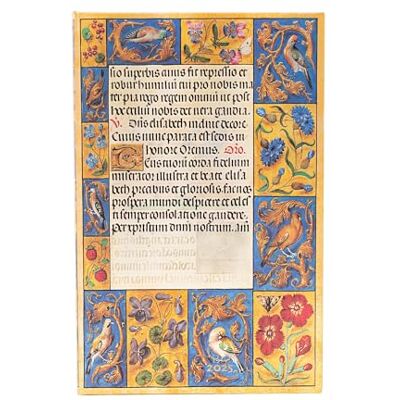 sio superbis cuius fit repressio et
robur humiliu pia nobis ma
ter pia rogo regem omniu ut post
hoc exiliu nobis det vera gaudia.
V. Dns elisabeth induit decore.
Cuius nunc parata est sedis in
honore Oremus. Oro.
corda fidelium
miserator illustra et beate elisa
beth precibus et gloriosis fac nos
prospera mundi despicere et celes
ti semper consolatione gaudere.
Per xpistum dnm nostrum. am
2025